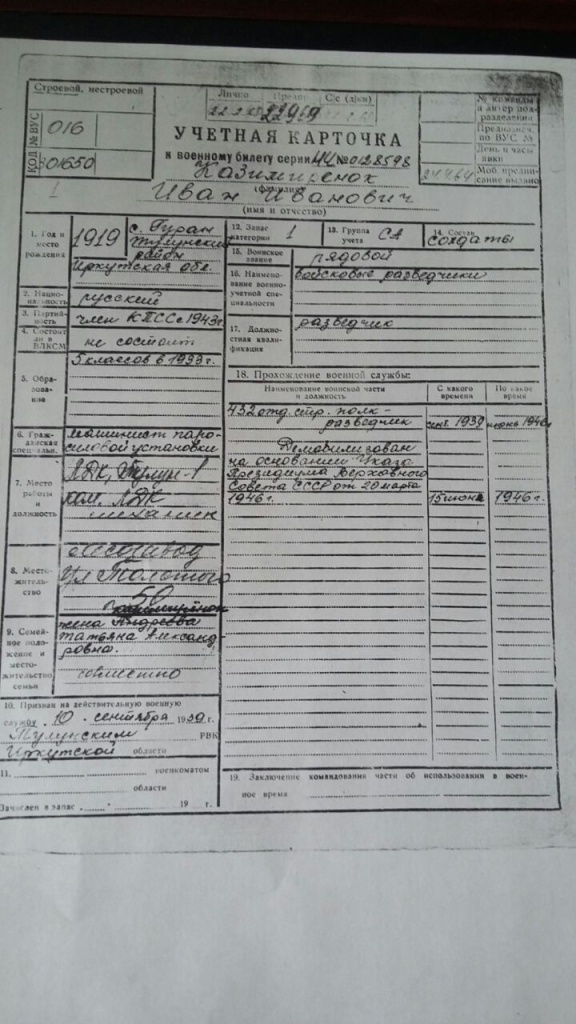 Строевой, нестроевой
Лично
С/с (д/ки)
22969
КОД № ВУС
016
01650
1
УЧЕТНАЯ КАРТОЧКА
к военному билету серии № 0128598
Казимиренок
(фамилия)
Иван Иванович
(имя и отчество)
№ команды
Предназнач.
по ВУС №
День и часы
явки
Моб. предпи-
сание выдано
1. Год и
место
рождения
1919
с. Гуран
Тулунский
район
Иркутская обл.
2. Нацио-
нальность
русский
3. Партий-
ность
член КПСС с 1943г.
4. Состоит
ли в
ВЛКСМ
не состоит
5. Обра-
зование
5 классов в 1933г.
6. Граж-
данская
специальн.
машинист паро-
силовой установки
7. Место
работы
и
должность
ЛДК, Тулун-1
механик
8. Место-
житель-
ство
ул Толстого
50
9. Семей-
ное поло-
жение и
место-
жительство
семьи
жена Андреева
Татьяна Александ-
ровна.
совместно
10. Призван на действительную военную
службу 10 сентября 1939 г.
Тулунским РВК
Иркутской области
11. военкоматом
области
Зачислен в запас 19 г.
12. Запас
категории
1
13. Группа
учета
СА
14. Состав
солдаты
15. Воинское
звание
рядовой
16. Наимено-
вание военно-
учетной спе-
циальности
войсковые разведчики
17. Должно-
стная квали-
фикация
разведчик
18. Прохождение военной службы:
Наименование воинской части
и должность
С какого
времени
По какое
время
432 отд. стр. полк-
разведчик
сент. 1939
июнь 1946г
Демобилизован
на основании Указа
Президиума Верховного
Совета СССР от 20 марта
1946г.
15 июня
1946г.
19. Заключение командования части об использовании в воен-
ное время